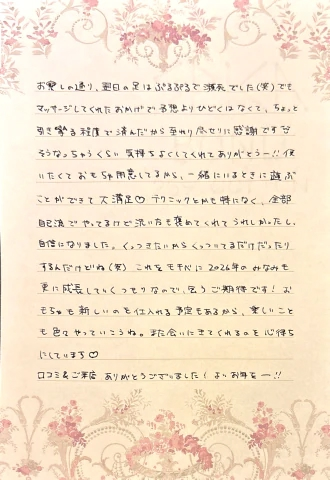 お察しの通り、翌日の足はぷるぷるで瀕死でした(笑)でも
マッサージしてくれたおかげで予想よりひどくはなくて、ちょっと
引き攣る程度で済んだから至れり尽せりに感謝です
そうなっちゃうくらい気持ちよくしてくれてありがとうー!!使
いたくておもちゃ用意してるから、一緒にいるときに遊ぶ
ことができて大満足♡テクニックとかも特になく、全部
自己流でやってるけど沢山も褒めてくれてうれしかったし、
自信になりました。くっつきたいからくっついてるだけだったり
するんだけどね(笑)これをもとに2026年のみなみも
更に成長していくつもりなので、乞うご期待です!お
もちゃも新しいのを仕入れる予定もあるから、楽しいこと
も色々やっていこうね。また会いにきてくれるのを心待ち
にしています♡
口コミ&ご来店ありがとうございました!よいお年をー!!